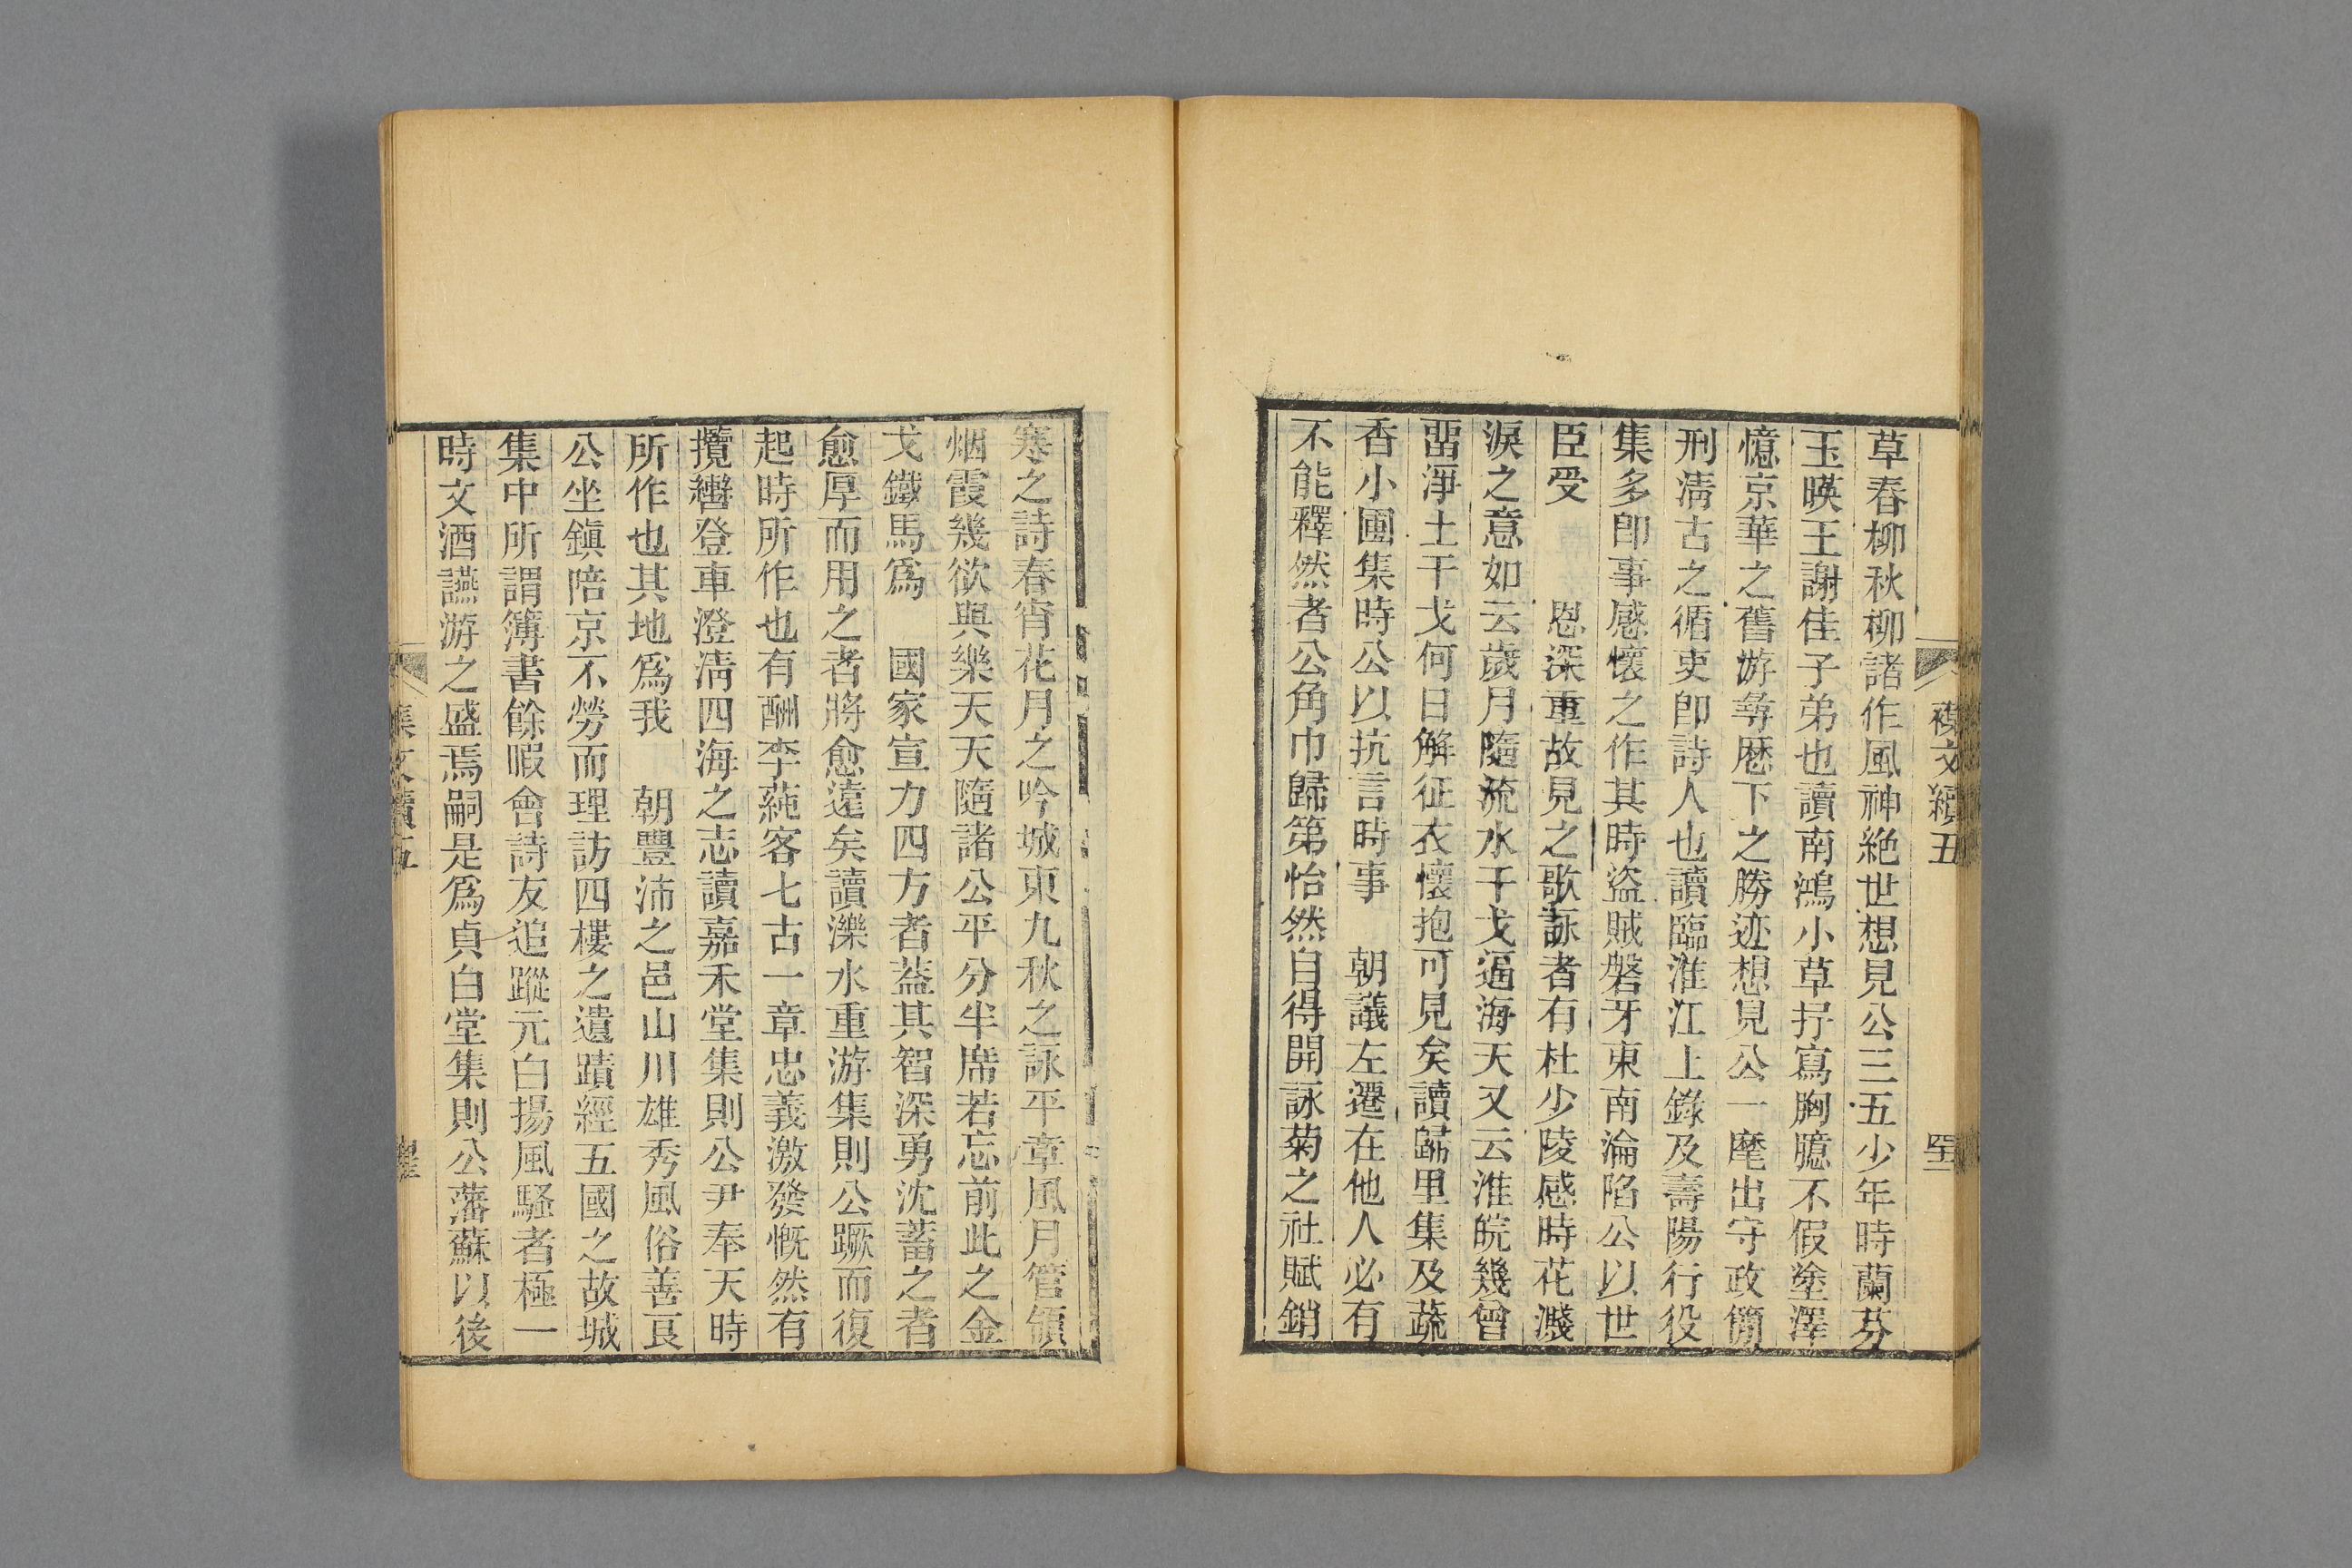 草春柳秋柳諸作風神絶世想見公三五少年時蘭芬
玉暎王謝佳子弟也讀南鴻小草抒寫胸臆不假塗澤
憶京華之舊游尋厯下之勝迹想見公一麾出守政簡
刑淸古之循吏卽詩人也讀臨淮江上錄及壽陽行役
集多卽事感懷之作其時盜賊磐牙東南淪陷公以世
臣受　恩深重故見之歌詠者有杜少陵感時花濺
淚之意如云歲月隨流水干戈逼海天又云淮皖幾曾
畱淨土干戈何日解征衣懷抱可見矣讀歸里集及蔬
香小圃集時公以抗言時事　朝議左遷在他人必有
不能釋然者公角巾歸第怡然自得開詠菊之社賦銷
寒之詩春宵花月之吟城東九秋之詠平章風月管領
烟霞幾欲與樂天天隨諸公平分半席若忘前此之金
戈鐵馬爲　國家宣力四方者葢其智深勇沈蓄之者
愈厚而用之者將愈遠矣讀灤水重游集則公蹶而復
起時所作也有酬李蒓客七古一章忠義激發慨然有
攬轡登車澄淸四海之志讀嘉禾堂集則公尹奉天時
所作也其地爲我　朝豐沛之邑山川雄秀風俗善良
公坐鎭陪京不勞而理訪四樓之遺蹟經五國之故城
集中所謂簿書餘暇會詩友追蹤元白揚風騷者極一
時文酒讌游之盛焉嗣是爲貞白堂集則公藩蘇以後